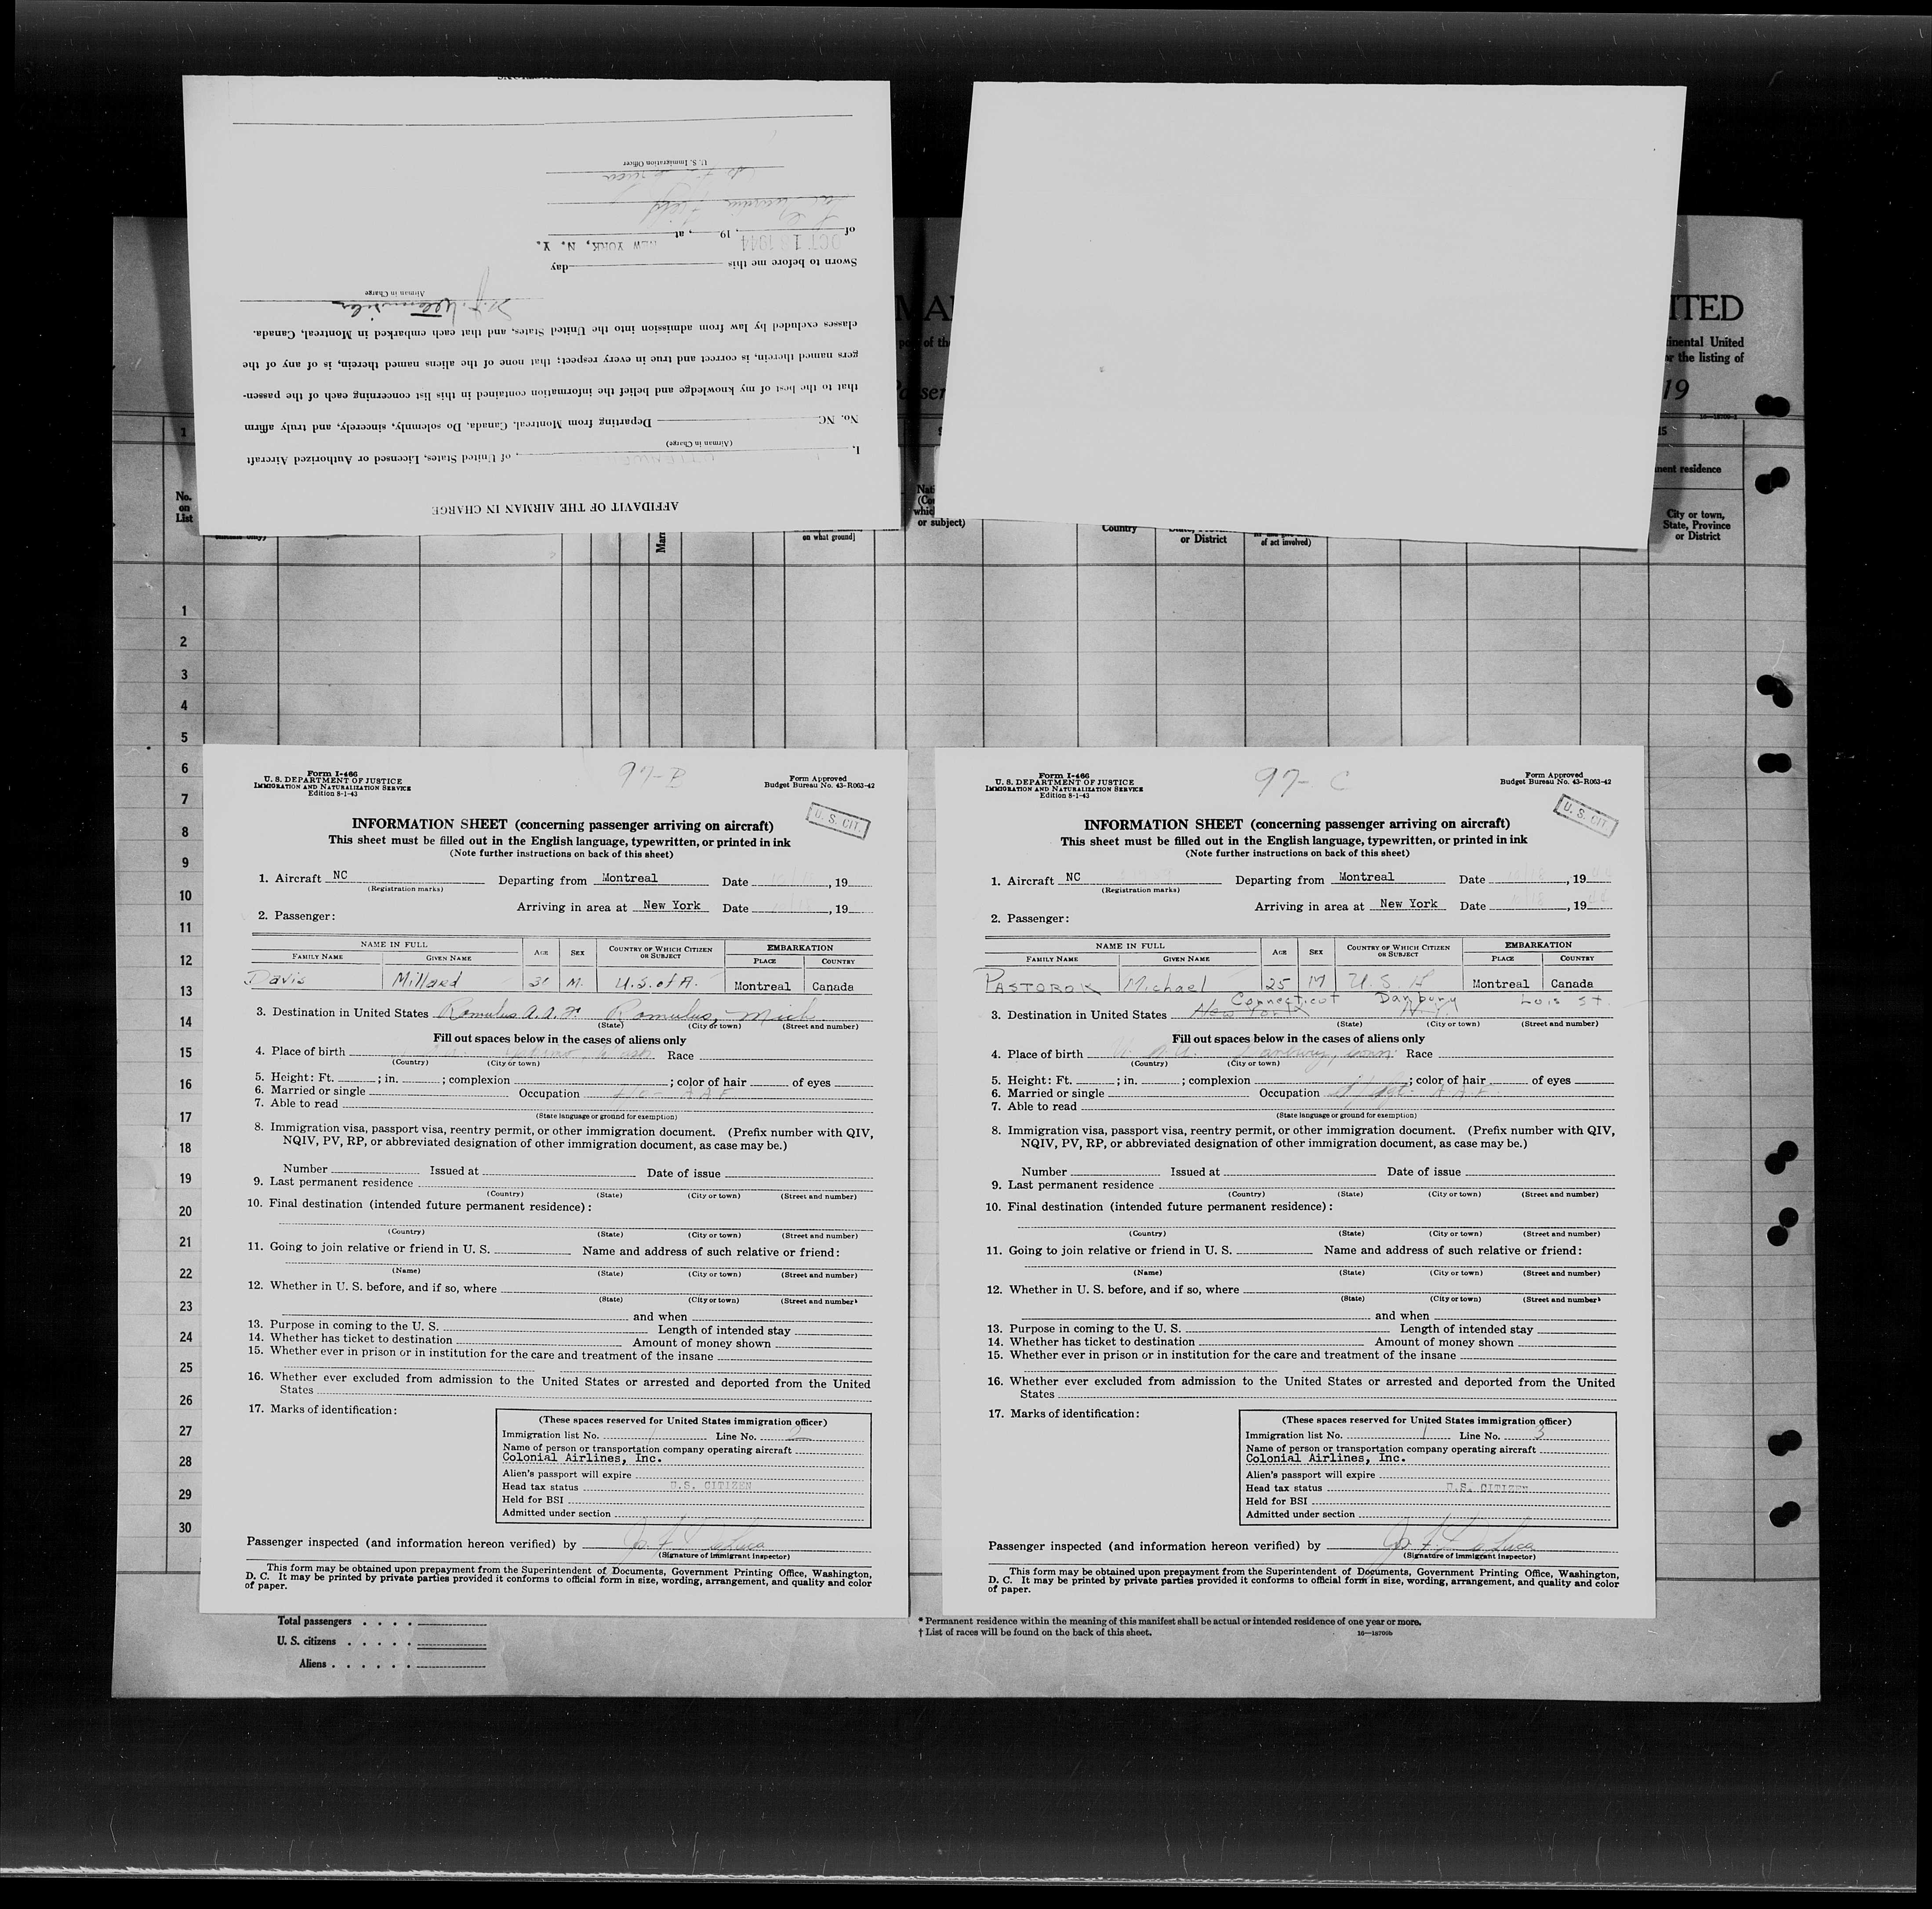 AFFIDAVIT OF THE AIRMAN IN CHARGE
I, , of United States, Licensed or Authorized Aircraft
(Airman in Charge)
No. NC Departing from Montreal, Canada, Do solemnly, sincerely, and truly affirm
that to the best of my knowledge and belief the information contained in this list concerning each of the passen-
gers named therein, is correct and true in every respect; that none of the aliens named therein, is of any of the
classes excluded by law from admission into the United States, and that each embarked in Montreal, Canada.
Airman in Charge
Sworn to before me this day
of OCT 1 1944, 19 , at NEW YORK, N. Y.
Field
U. S. Immigration Officer
MA
ITED
of the
inental United
or the listing of
Passen
19
1
15
nent residence
No.
on
List
or subject)
Country
or District
of act involved)
City or town,
State, Province
or District
on what ground]
1
2
3
4
5
6
7
8
9
10
11
12
13
14
15
16
17
18
19
20
21
22
23
24
25
26
27
28
29
30
97-B
Form I-466
U. S. DEPARTMENT OF JUSTICE
IMMIGRATION AND NATURALIZATION SERVICE
Edition 8-1-43
Form Approved
Budget Bureau No. 43-R063-42
U. S. CIT.
INFORMATION SHEET (concerning passenger arriving on aircraft)
This sheet must be filled out in the English language, typewritten, or printed in ink
(Note further instructions on back of this sheet)
1. Aircraft NC Departing from Montreal Date , 19
(Registration marks)
Arriving in area at New York Date , 19
2. Passenger:
NAME IN FULL AGE SEX COUNTRY OF WHICH CITIZEN OR SUBJECT EMBARKATION
FAMILY NAME GIVEN NAME PLACE COUNTRY
Davis Millard M. U.S. of A. Montreal Canada
3. Destination in United States Romulus A.A.F. Romulus, Mich
(State) (City or town) (Street and number)
Fill out spaces below in the cases of aliens only
4. Place of birth Race
(Country) (City or town)
5. Height: Ft. ; in. ; complexion ; color of hair of eyes
6. Married or single Occupation AAF
7. Able to read
(State language or ground for exemption)
8. Immigration visa, passport visa, reentry permit, or other immigration document. (Prefix number with QIV,
NQIV, PV, RP, or abbreviated designation of other immigration document, as case may be.)
Number Issued at Date of issue
9. Last permanent residence
(Country) (State) (City or town) (Street and number)
10. Final destination (intended future permanent residence):
(Country) (State) (City or town) (Street and number)
11. Going to join relative or friend in U. S. Name and address of such relative or friend:
(Name) (State) (City or town) (Street and number)
12. Whether in U. S. before, and if so, where
(State) (City or town) (Street and number)
and when
13. Purpose in coming to the U. S. Length of intended stay
14. Whether has ticket to destination Amount of money shown
15. Whether ever in prison or in institution for the care and treatment of the insane
16. Whether ever excluded from admission to the United States or arrested and deported from the United
States
17. Marks of identification:
(These spaces reserved for United States immigration officer)
Immigration list No. 1 Line No. 2
Name of person or transportation company operating aircraft
Colonial Airlines, Inc.
Alien's passport will expire
Head tax status U.S. CITIZEN
Held for BSI
Admitted under section
Passenger inspected (and information hereon verified) by
(Signature of Immigrant Inspector)
This form may be obtained upon prepayment from the Superintendent of Documents, Government Printing Office, Washington,
D. C. It may be printed by private parties provided it conforms to official form in size, wording, arrangement, and quality and color
of paper.
97-C
Form I-466
U. S. DEPARTMENT OF JUSTICE
IMMIGRATION AND NATURALIZATION SERVICE
Edition 8-1-43
Form Approved
Budget Bureau No. 43-R063-42
U. S. CIT
INFORMATION SHEET (concerning passenger arriving on aircraft)
This sheet must be filled out in the English language, typewritten, or printed in ink
(Note further instructions on back of this sheet)
1. Aircraft NC Departing from Montreal Date , 19
(Registration marks)
Arriving in area at New York Date , 19
2. Passenger:
NAME IN FULL AGE SEX COUNTRY OF WHICH CITIZEN OR SUBJECT EMBARKATION
FAMILY NAME GIVEN NAME PLACE COUNTRY
PASTOROK Michael 25 M U. S. A Montreal Canada
Connecticut Danbury Lois St.
3. Destination in United States New York N.Y.
(State) (City or town) (Street and number)
Fill out spaces below in the cases of aliens only
4. Place of birth U.S.A. Danbury, Conn. Race
(Country) (City or town)
5. Height: Ft. ; in. ; complexion ; color of hair of eyes
6. Married or single Occupation S/Sgt. A.A.F.
7. Able to read
(State language or ground for exemption)
8. Immigration visa, passport visa, reentry permit, or other immigration document. (Prefix number with QIV,
NQIV, PV, RP, or abbreviated designation of other immigration document, as case may be.)
Number Issued at Date of issue
9. Last permanent residence
(Country) (State) (City or town) (Street and number)
10. Final destination (intended future permanent residence):
(Country) (State) (City or town) (Street and number)
11. Going to join relative or friend in U. S. Name and address of such relative or friend:
(Name) (State) (City or town) (Street and number)
12. Whether in U. S. before, and if so, where
(State) (City or town) (Street and number)
and when
13. Purpose in coming to the U. S. Length of intended stay
14. Whether has ticket to destination Amount of money shown
15. Whether ever in prison or in institution for the care and treatment of the insane
16. Whether ever excluded from admission to the United States or arrested and deported from the United
States
17. Marks of identification:
(These spaces reserved for United States immigration officer)
Immigration list No. 1 Line No. 3
Name of person or transportation company operating aircraft
Colonial Airlines, Inc.
Alien's passport will expire
Head tax status U.S. CITIZEN
Held for BSI
Admitted under section
Passenger inspected (and information hereon verified) by
(Signature of Immigrant Inspector)
This form may be obtained upon prepayment from the Superintendent of Documents, Government Printing Office, Washington,
D. C. It may be printed by private parties provided it conforms to official form in size, wording, arrangement, and quality and color
of paper.
Total passengers . . . .
U. S. citizens . . . . .
Aliens . . . . . .
* Permanent residence within the meaning of this manifest shall be actual or intended residence of one year or more.
† List of races will be found on the back of this sheet.
16—18700b